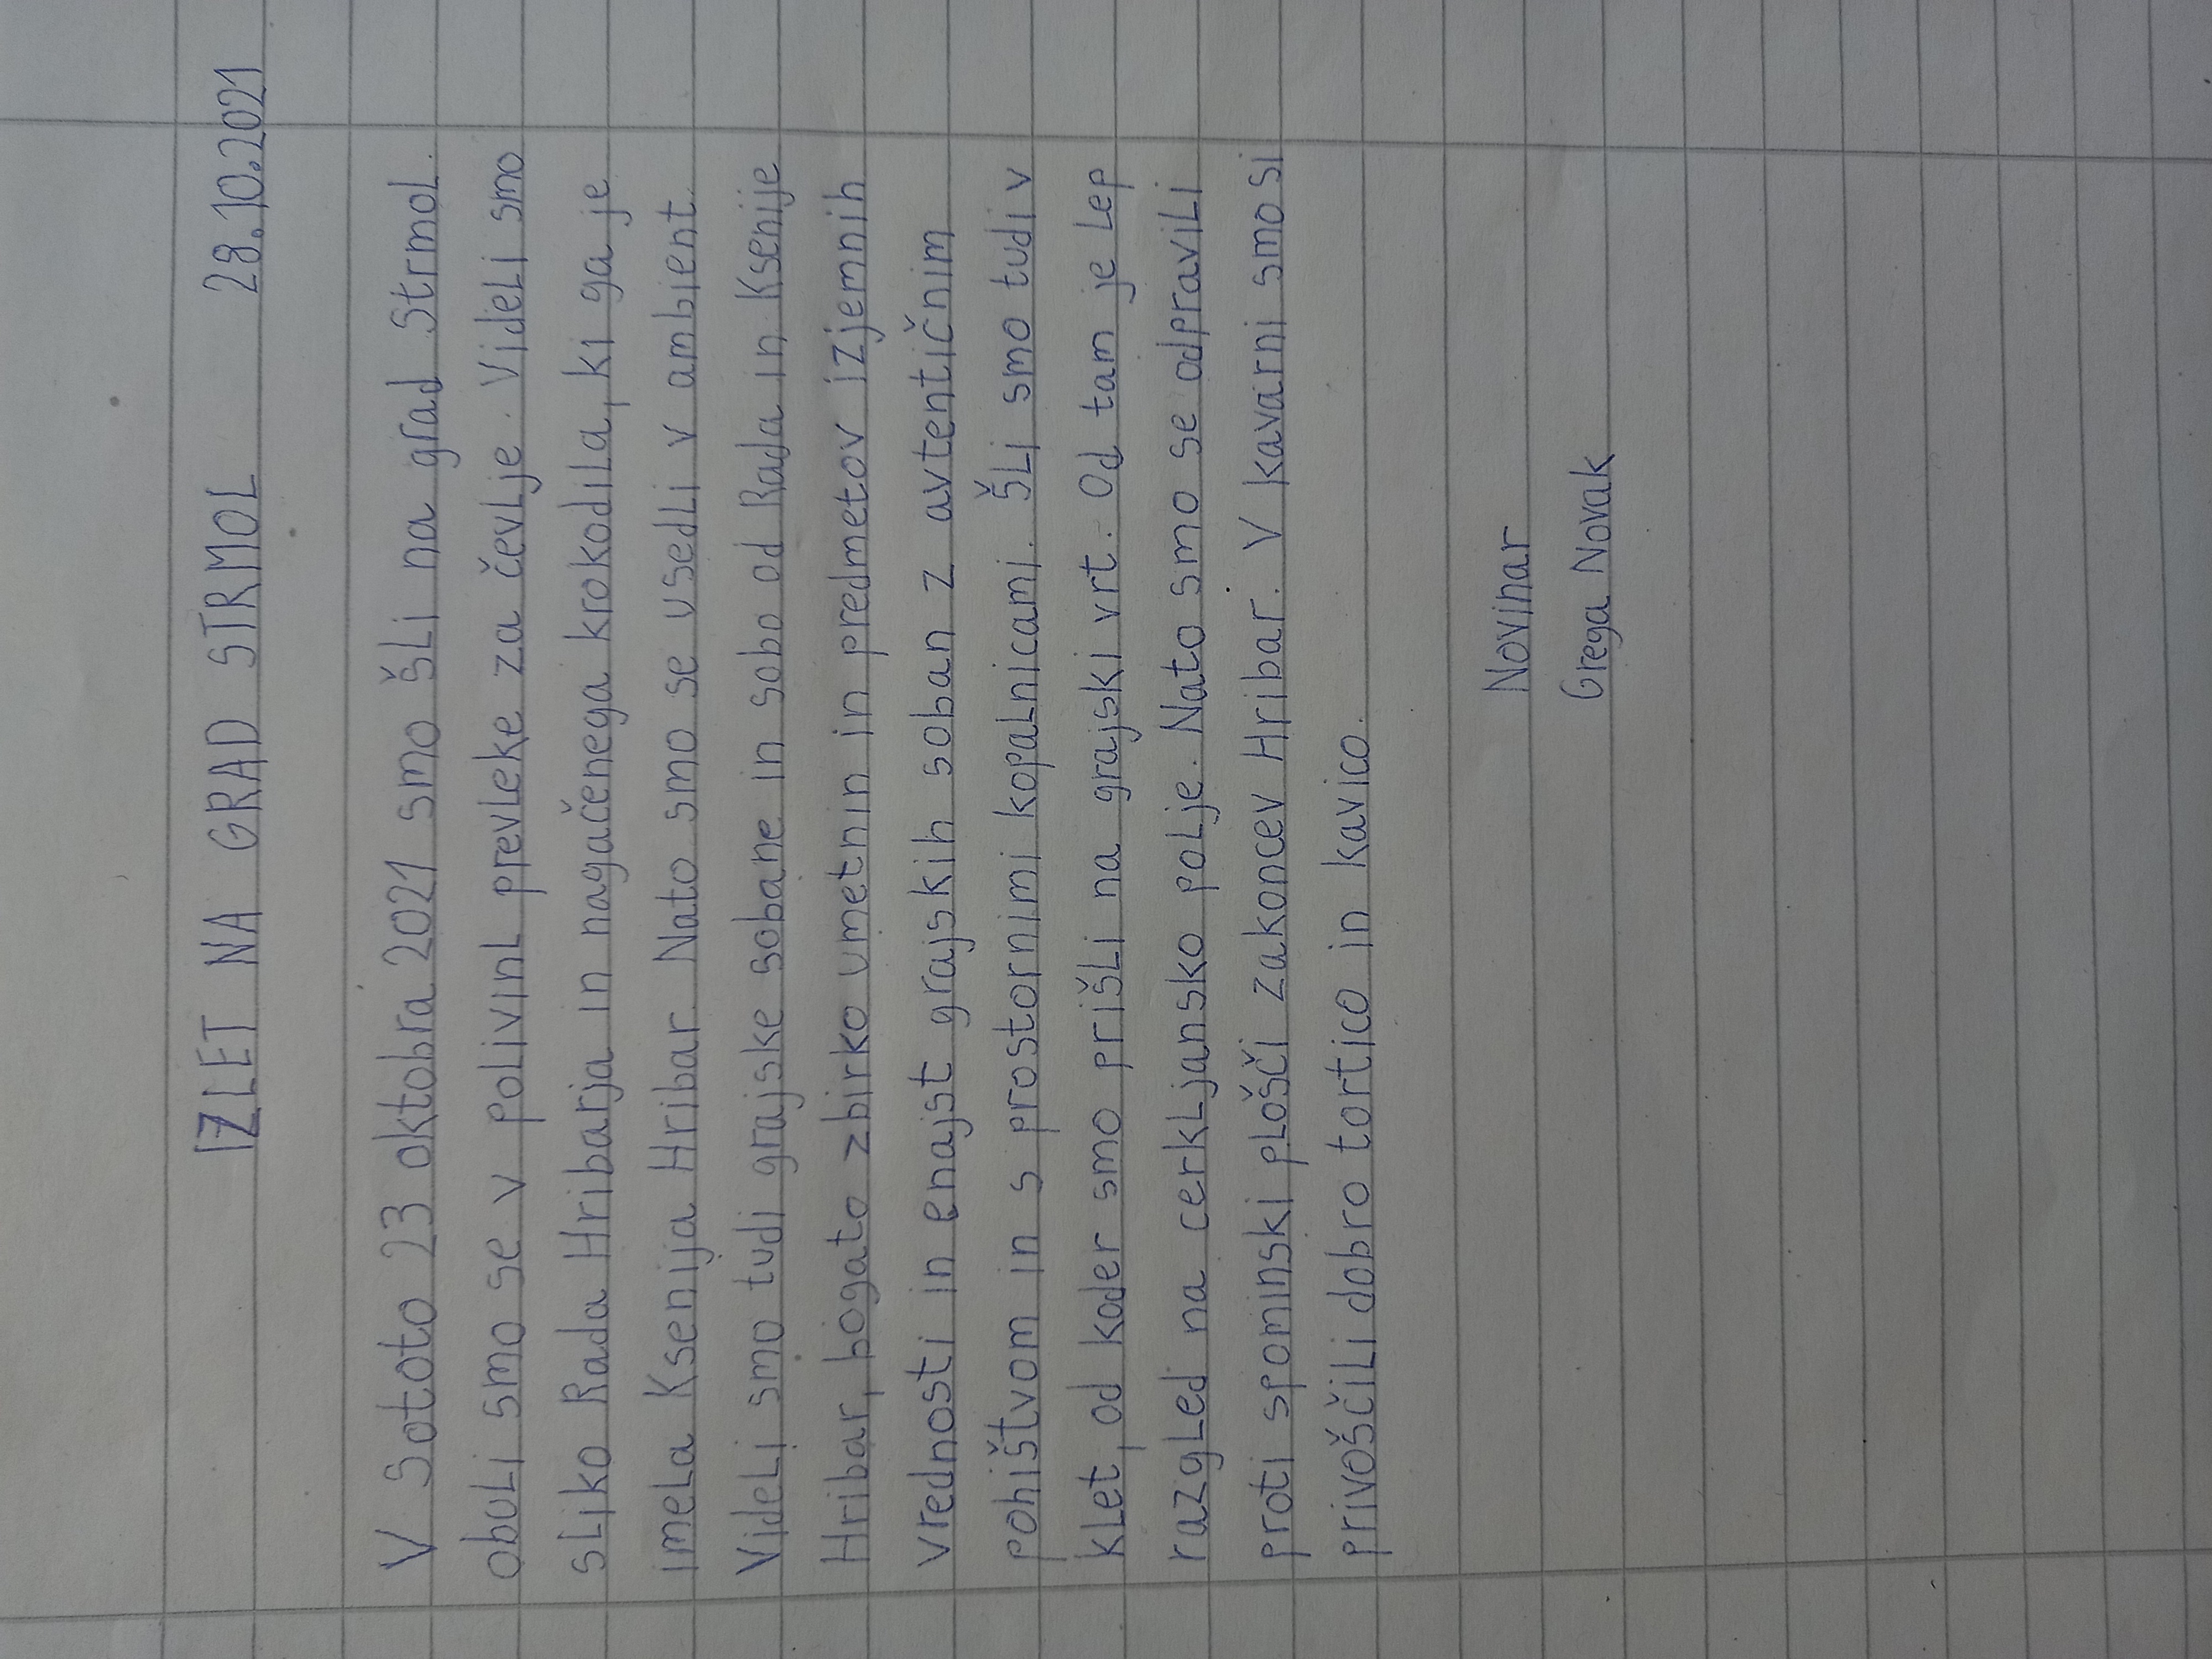 IZLET NA GRAD STRMOL 28.10.2021
V Soboto 23 oktobra 2021 smo šli na grad Strmol.
obuli smo se v polivinl prevleke za čevlje. Videli smo
sliko Rada Hribarja in nagačenega krokodila, ki ga je
imela Ksenija Hribar. Nato smo se usedli v ambient.
Videli smo tudi grajske sobane in sobo od Rada in Ksenije
Hribar, bogato zbirko umetnin in predmetov izjemnih
vrednosti in enajst grajskih soban z avtentičnim
pohištvom in s prostornimi kopalnicami. Šli smo tudi v
klet, od koder smo prišli na grajski vrt. Od tam je lep
razgled na cerkljansko polje. Nato smo se odpravili
proti spominski plošči zakoncev Hribar. V kavarni smo si
privoščili dobro tortico in kavico.
Novinar
Grega Novak